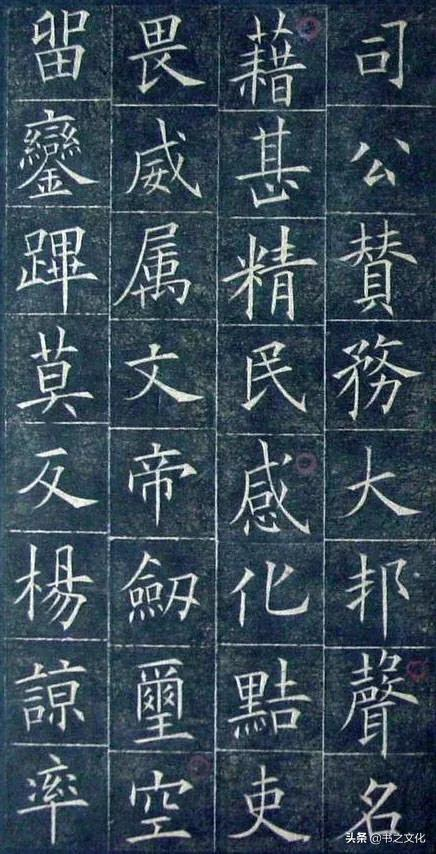 司公賛務大邦聲名
藉甚精民感化黠吏
畏威属文帝劒璽空
留鑾蹕莫反楊諒率
头条 @书之文化